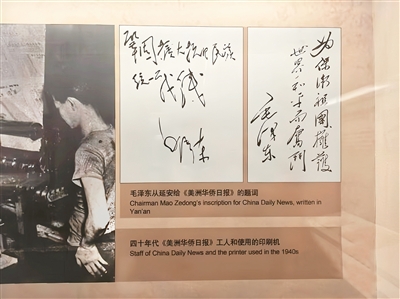 鞏固擴大抗日民族
統一戰綫
毛澤东
为保衛祖國擁護
世界和平而奮鬥
毛澤东
毛泽东从延安给《美洲华侨日报》的题词
Chairman Mao Zedong's inscription for China Daily News, written in
Yan'an
四十年代《美洲华侨日报》工人和使用的印刷机
Staff of China Daily News and the printer used in the 1940s